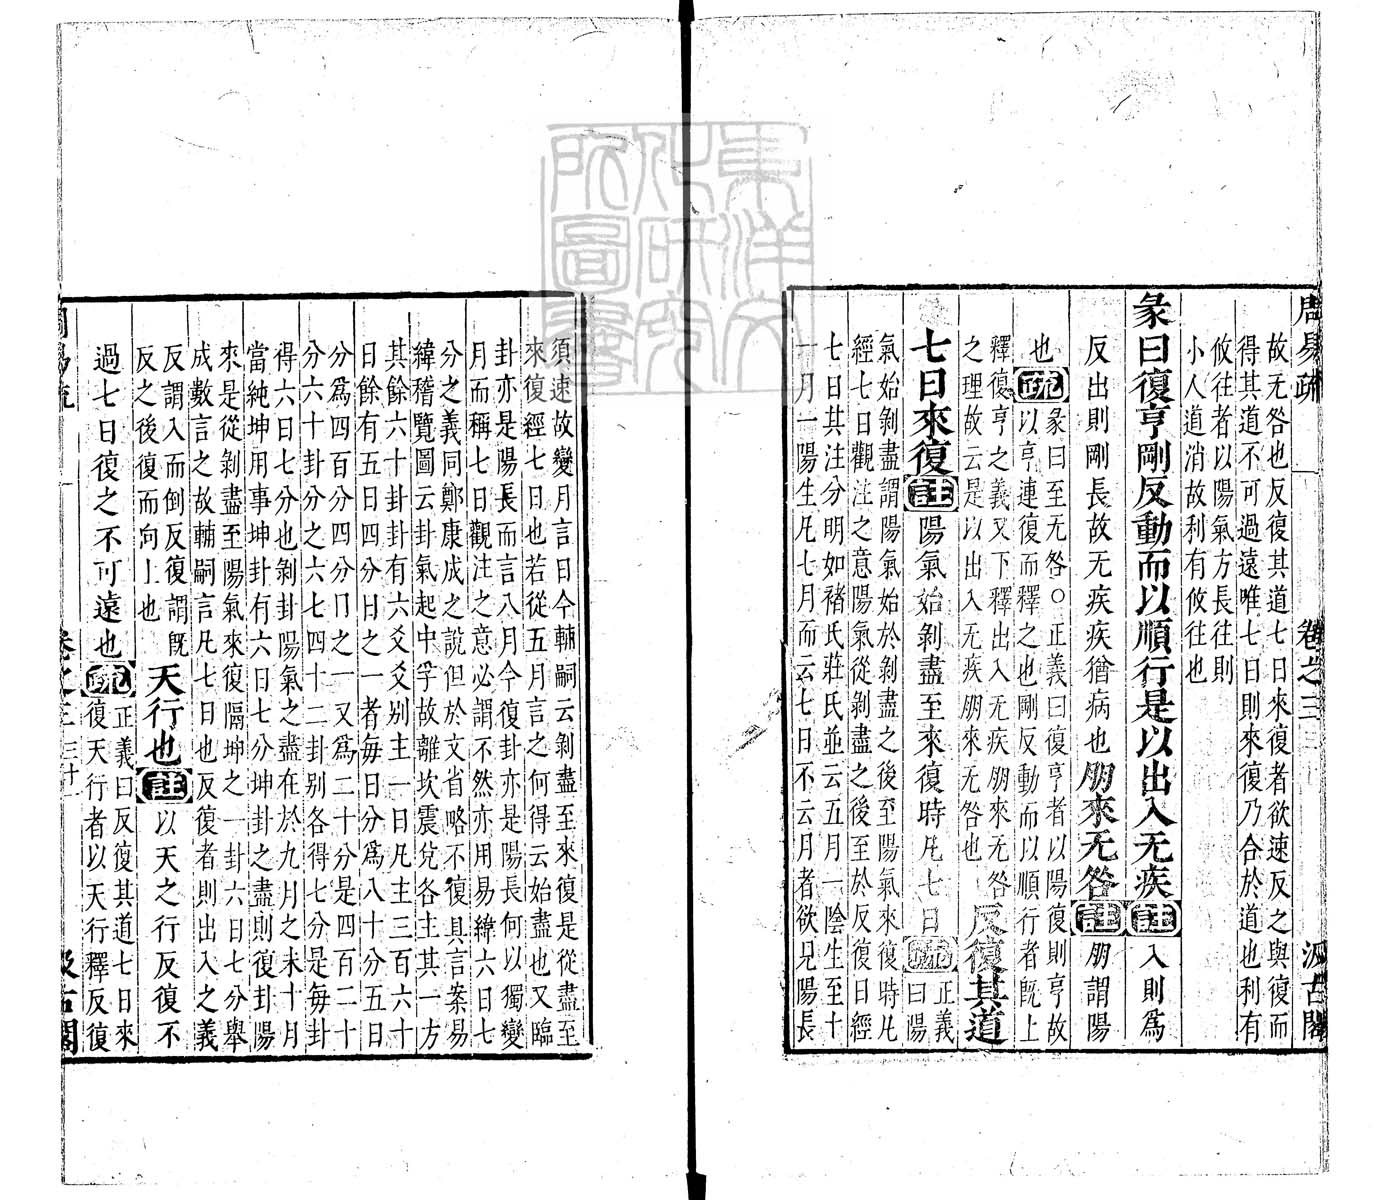 周易疏 卷之三 汲古閣
故无咎也反復其道七日來復者欲速反之與復而
得其道不可過遠唯七日則來復乃合於道也利有
攸往者以陽氣方長往則
小人道消故利有攸往也
彖曰復亨剛反動而以順行是以出入无疾註入則爲
反出則剛長故无疾疾猶病也朋來无咎註朋謂陽
也疏彖曰至无咎○正義曰復亨者以陽復則亨故
以亨連復而釋之也剛反動而以順行者既上
釋復亨之義又下釋出入无疾朋來无咎
之理故云是以出入无疾朋來无咎也
反復其道
七日來復註陽氣始剝盡至來復時凡七日疏正義
曰陽
氣始剝盡謂陽氣始於剝盡之後至陽氣來復時凡
經七日觀注之意陽氣從剝盡之後至於反復日經
七日其注分明如褚氏莊氏並云五月一陰生至十
一月一陽生凡七月而云七日不云月者欲見陽長
須速故變月言日今輔嗣云剝盡至來復是從盡至
來復經七日也若從五月言之何得云始盡也又臨
卦亦是陽長而言八月今復卦亦是陽長何以獨變
月而稱七日觀注之意必謂不然亦用易緯六日七
分之義同鄭康成之說但於文省略不復具言案易
緯稽覽圖云卦氣起中孚故離坎震兌各主其一方
其餘六十卦卦有六爻爻别主一日凡主三百六十
日餘有五日四分日之一者每日分爲八十分五日
分爲四百分四分日之一又爲二十分是四百二十
分六十卦分之六七四十二卦别各得七分是每卦
得六日七分也剝卦陽氣之盡在於九月之末十月
當純坤用事坤卦有六日七分坤卦之盡則復卦陽
來是從剝盡至陽氣來復隔坤之一卦六日七分舉
成數言之故輔嗣言凡七日也反復者則出入之義
反謂入而倒反復謂既
反之後復而向上也
天行也註以天之行反復不
過七日復之不可遠也疏正義曰反復其道七日來
復天行者以天行釋反復
周易疏 卷之三 三十一 汲古閣
東洋文化研究所圖書